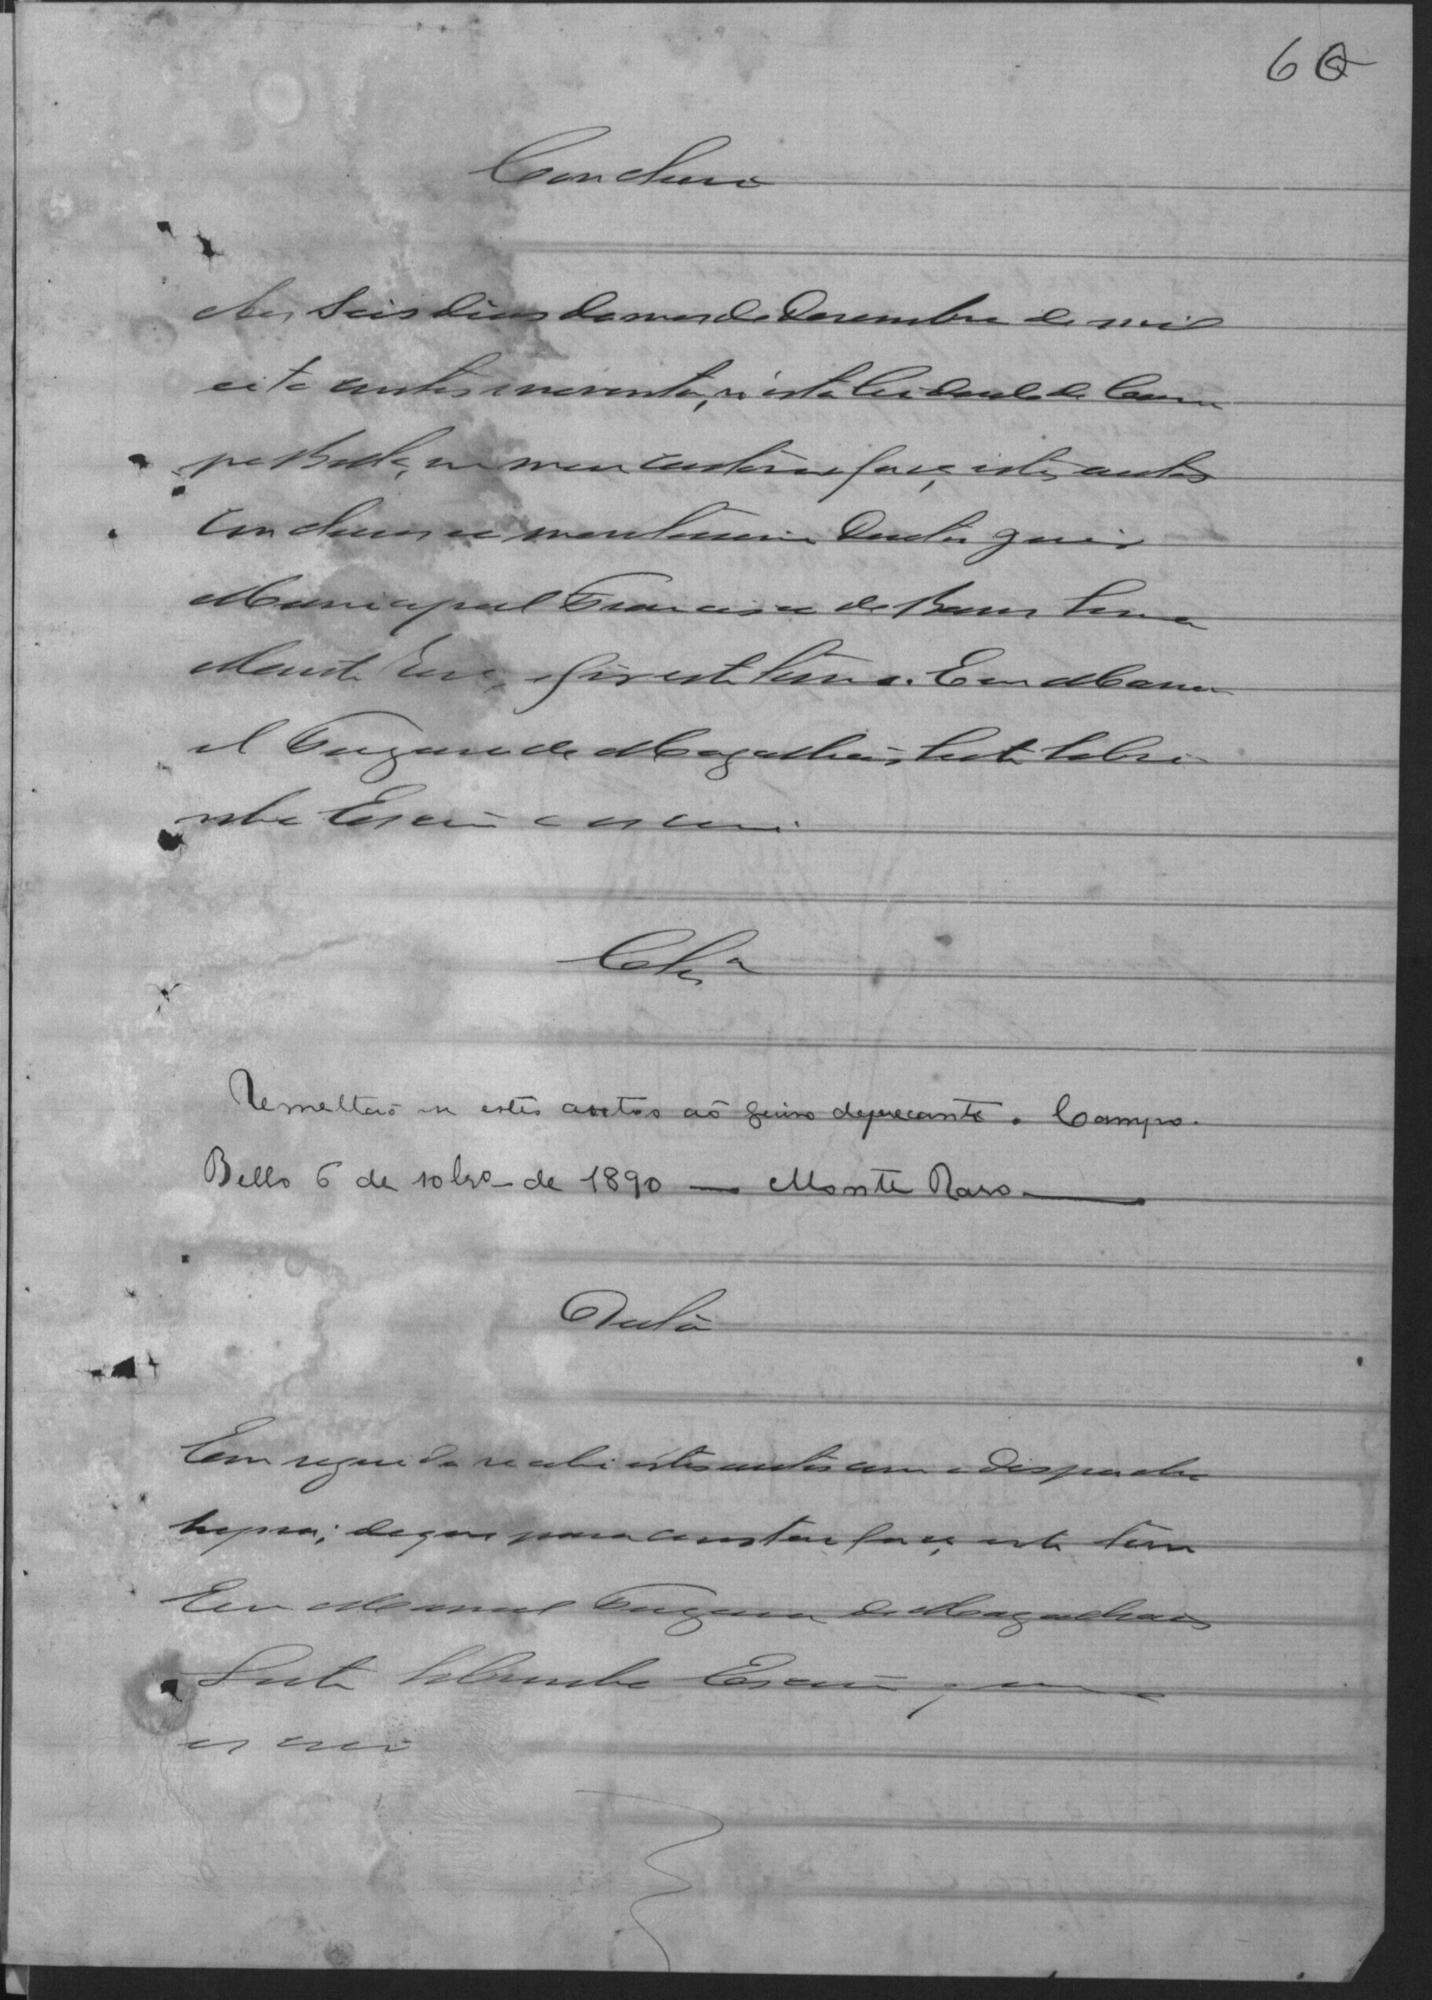 60
Conclusão
Aos Seis dias do mes de Dezembro de mil
oito centos e noventa, n'esta Cidade de Cam
po Bello, em meu cartorio faço estes autos
conclusos ao meritissimo Doutor Juiz
Municipal Francisco de Barros Lima
Monte Raso, e fiz este termo. Eu Mano
el de Magalhães Leite
Escrivão o escrevi.
Clsª
Remettão se estes autos ao Juizo deprecante. Campo.
Bello 6 de 10brº de 1890 — Monte Raso —
Data
Em seguida recebi estes autos com o Despacho
supra; de que para constar faço este termo
Eu Manoel de Magalhães
Leite Escrivão que o
escrevi